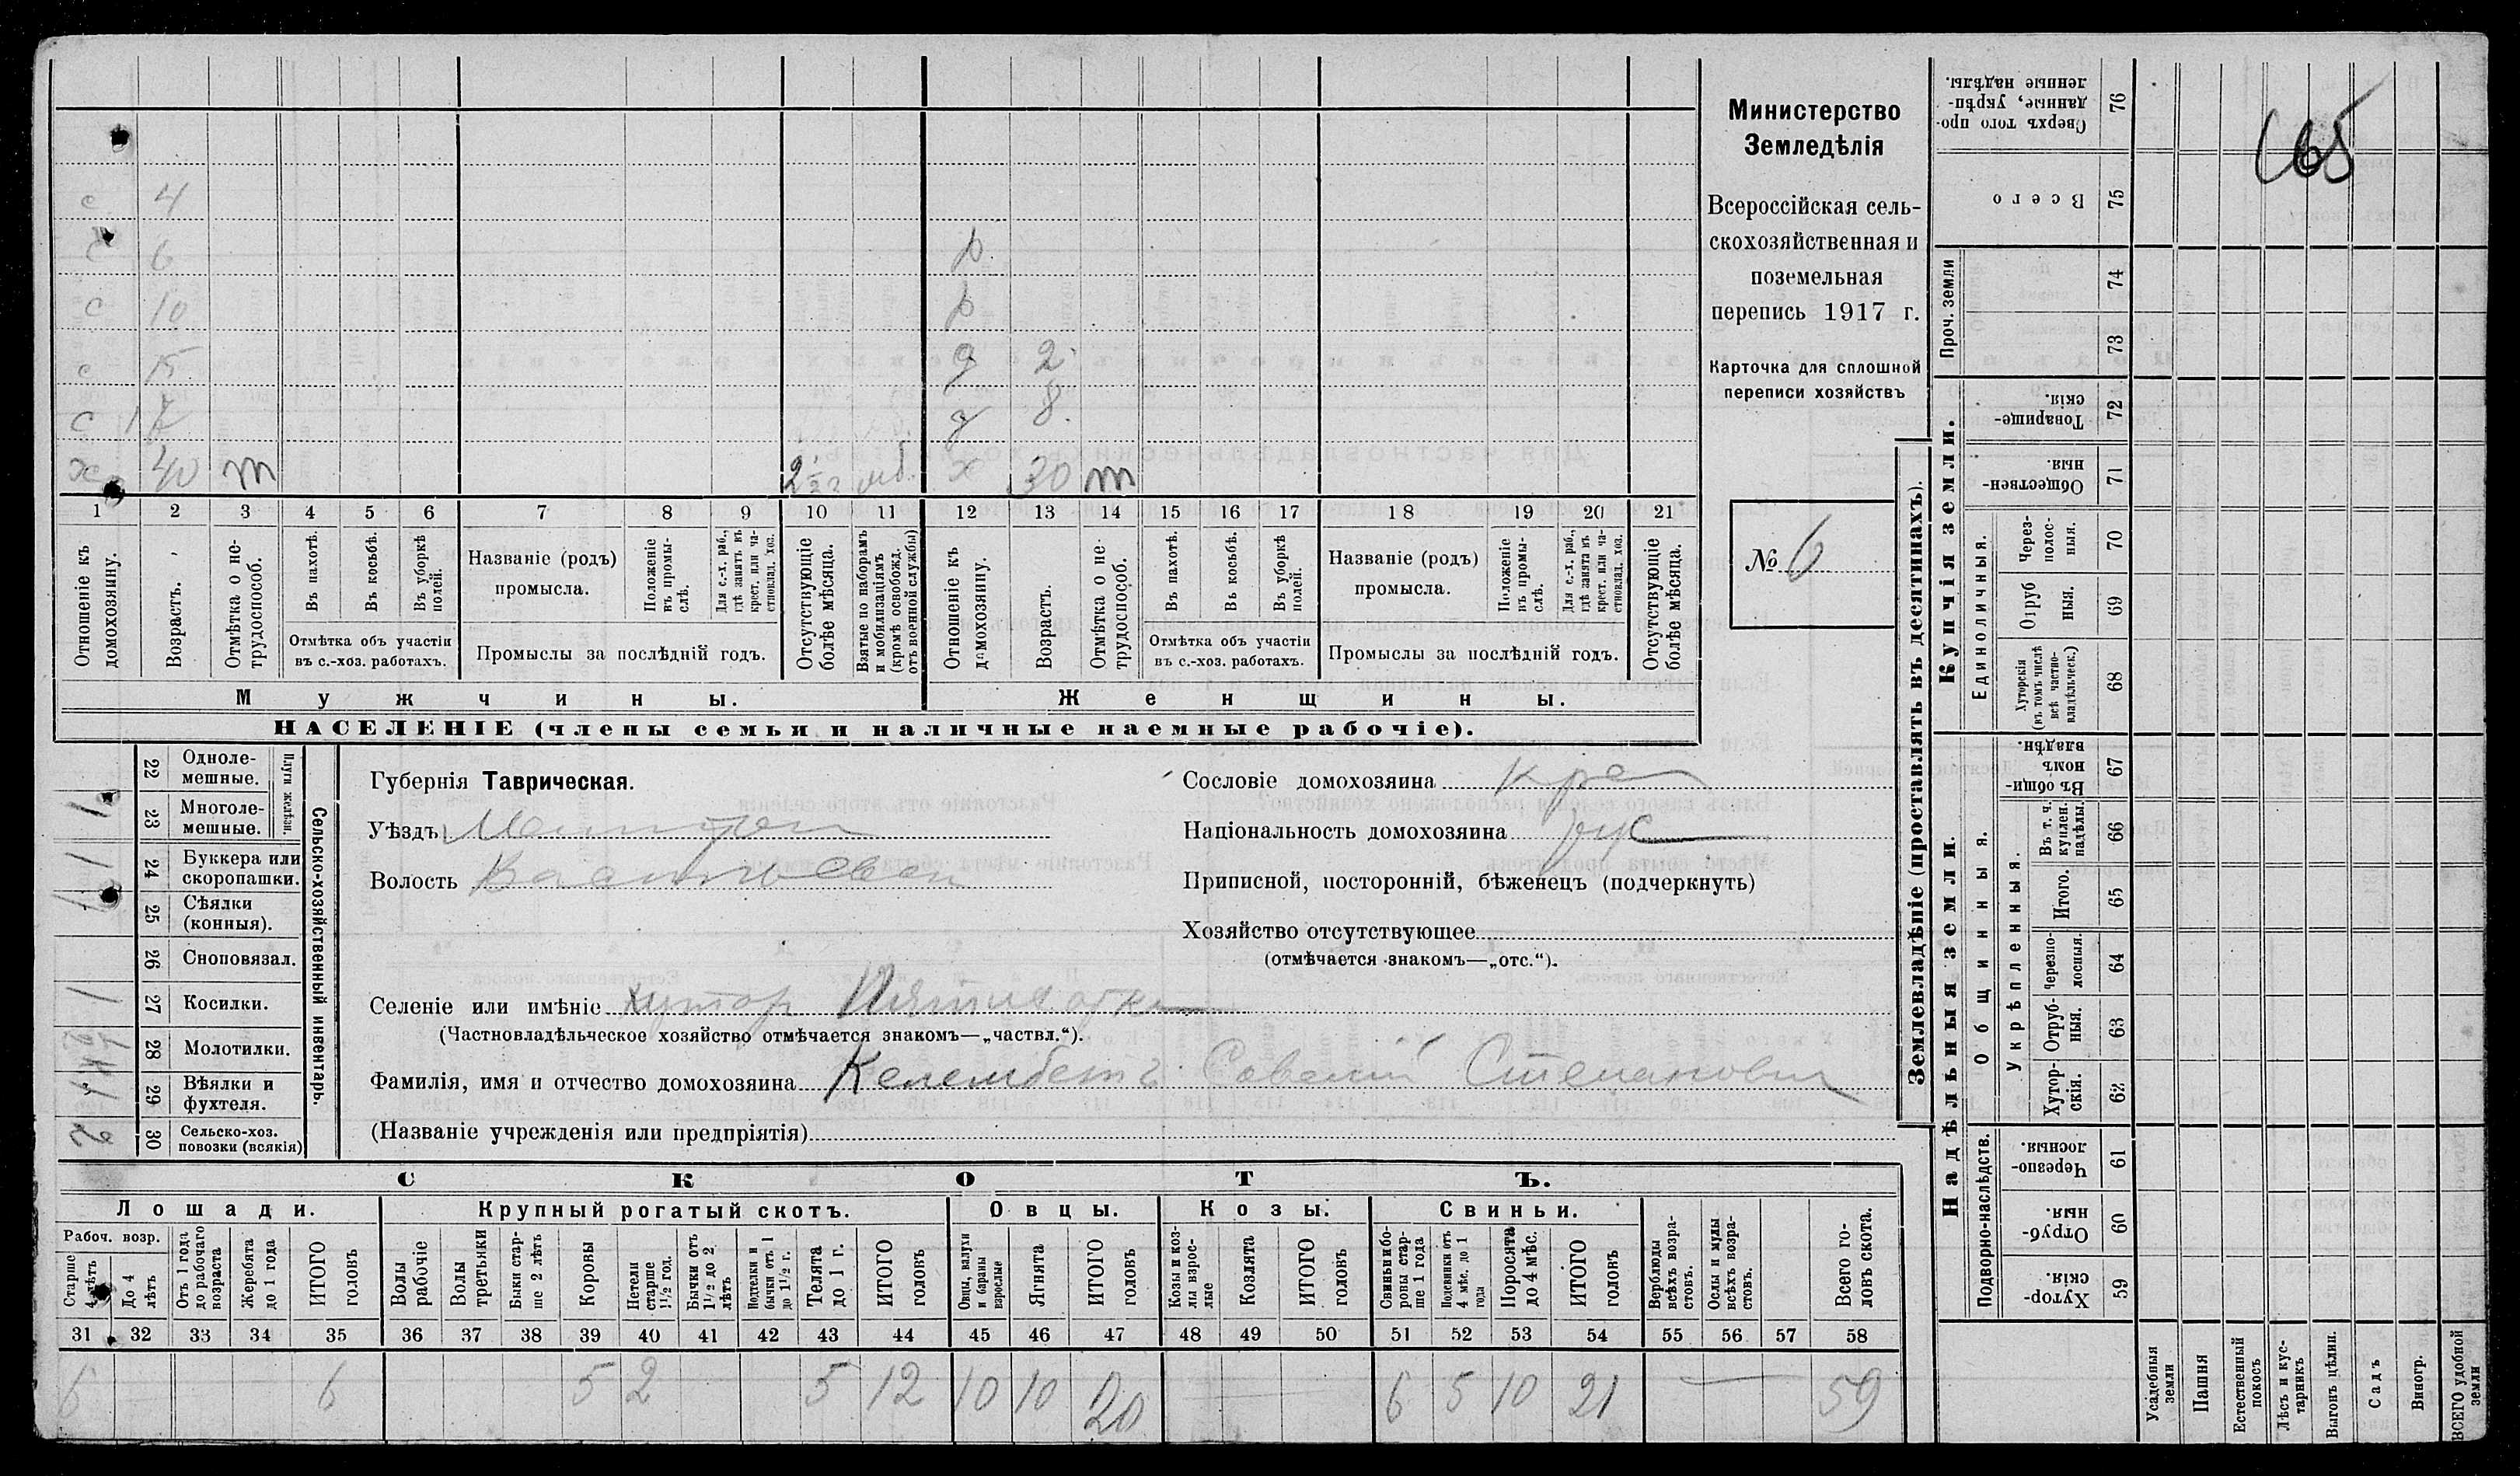 Министерство
Земледѣлія
Всероссійская сель-
скохозяйственная и
поземельная
перепись 1917 г.
Карточка для сплошной
переписи хозяйствъ
№ 6
с 4
с 6 р.
с 10 р
с 15 д 2
с 17 д 8.
х 40 т 2 1/2 х 30 т
1 2 3 4 5 6 7 8 9 10 11 12 13 14 15 16 17 18 19 20 21
Отношеніе къ домохозяину.
Возрастъ.
Отмѣтка о не-трудоспособ.
Въ пахотѣ.
Въ косьбѣ.
Въ уборкѣ полей.
Отмѣтка объ участіи
въ с.-хоз. работахъ.
Названіе (родъ)
промысла.
Положеніе въ промы-слѣ.
Для с.-х. раб., гдѣ занятъ въ крест. или ча-стновлад. хоз.
Промыслы за послѣдній годъ.
Отсутствующіе болѣе мѣсяца.
Взятые по наборамъ и мобилизаціямъ (кромѣ освобожд. отъ военной службы)
Отношеніе къ домохозяину.
Возрастъ.
Отмѣтка о не-трудоспособ.
Въ пахотѣ.
Въ косьбѣ.
Въ уборкѣ полей.
Отмѣтка объ участіи
въ с.-хоз. работахъ.
Названіе (родъ)
промысла.
Положеніе въ промы-слѣ.
Для с.-х. раб., гдѣ занята въ крест. или ча-стновлад. хоз.
Промыслы за послѣдній годъ.
Отсутствующіе болѣе мѣсяца.
Мужчины.
Женщины.
НАСЕЛЕНІЕ (члены семьи и наличные наемные рабочіе).
Сельско-хозяйственный инвентарь.
Плуги желѣзн.
22 Одноле-мешные.
1 23 Многоле-мешные.
1 24 Буккера или скоропашки.
1 25 Сѣялки (конныя).
26 Сноповязал.
1 27 Косилки.
28 Молотилки.
29 Вѣялки и фухтеля.
2 30 Сельско-хоз. повозки (всякія)
Губернія Таврическая.
Уѣздъ
Волость
Сословіе домохозяина кре
Національность домохозяина рус
Приписной, посторонній, бѣженецъ (подчеркнуть)
Хозяйство отсутствующее
(отмѣчается знакомъ—„отс.“).
Селеніе или имѣніе хутор Пятихатки
(Частновладѣльческое хозяйство отмѣчается знакомъ—„частвл.“).
Фамилія, имя и отчество домохозяина Келембетъ Савелій Степанович
(Названіе учрежденія или предпріятія)
СКОТЪ.
Лошади.
Крупный рогатый скотъ.
Овцы.
Козы.
Свиньи.
Рабоч. возр.
Старше 4 лѣтъ
До 4 лѣтъ
Отъ 1 года до рабочаго возраста
Жеребята до 1 года
ИТОГО головъ
Волы рабочіе
Волы третьяки
Быки стар-ше 2 лѣтъ
Коровы
Нетели старше 1 1/2 год.
Бычки отъ 1 1/2 до 2 лѣтъ
Подтелки и бычки отъ 1 до 1 1/2 г.
Телята до 1 г.
ИТОГО головъ
Овцы, валухи и бараны взрослые
Ягнята
ИТОГО головъ
Козы и коз-лы взрос-лые
Козлята
ИТОГО головъ
Свиньи и бо-ровы стар-ше 1 года
Подсвинки отъ 4 мѣс. до 1 года
Поросята до 4 мѣс.
ИТОГО головъ
Верблюды всѣхъ возра-стовъ.
Ослы и мулы всѣхъ возра-стовъ.
Всего го-ловъ скота.
31 32 33 34 35 36 37 38 39 40 41 42 43 44 45 46 47 48 49 50 51 52 53 54 55 56 57 58
6 6 5 2 5 12 10 10 20 6 5 10 21 59
Землевладѣніе (проставлять въ десятинахъ).
Купчія земли.
Надѣльныя земли.
Сверхъ того про-данные, укрѣп-ленные надѣлы. 76
Всего 75
Проч. земли
74
73
Товарище-скія. 72
Обществен-ныя. 71
Единоличныя.
Через-полос-ныя. 70
Отруб ныя. 69
Хуторскія (въ томъ числѣ всѣ частно-владѣльческ.) 68
Въ общи-номъ владѣн. 67
Общинныя.
Укрѣпленныя.
Въ т. ч. куплен. надѣлы. 66
Итого. 65
Черезпо-лосныя. 64
Отруб-ныя. 63
Хутор-скія. 62
Подворно-наслѣдств.
Черезпо-лосныя. 61
Отруб-ныя. 60
Хутор-скія. 59
Усадебныя земли
Пашня
Естественный покосъ
Лѣсъ и кус-тарникъ
Выгонъ цѣлин.
Садъ
Виногр.
ВСЕГО удобной земли